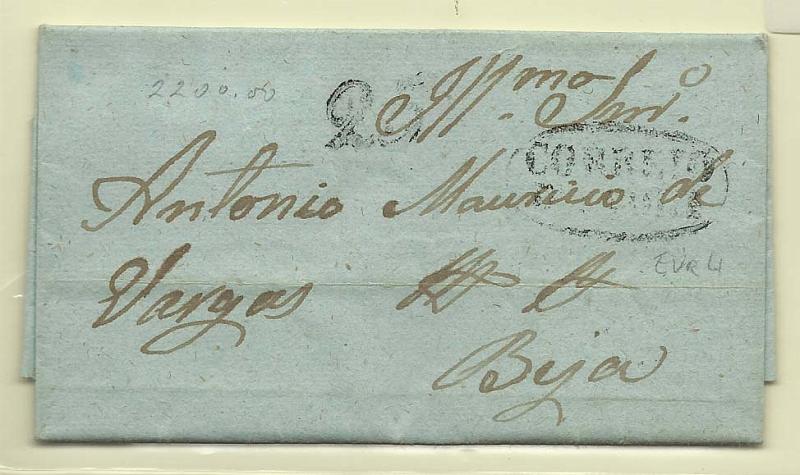 2200.00
25
Ill.mo Snr.o
CORREIO
Antonio Mauricio de
EVR 4
Vargas
Beja